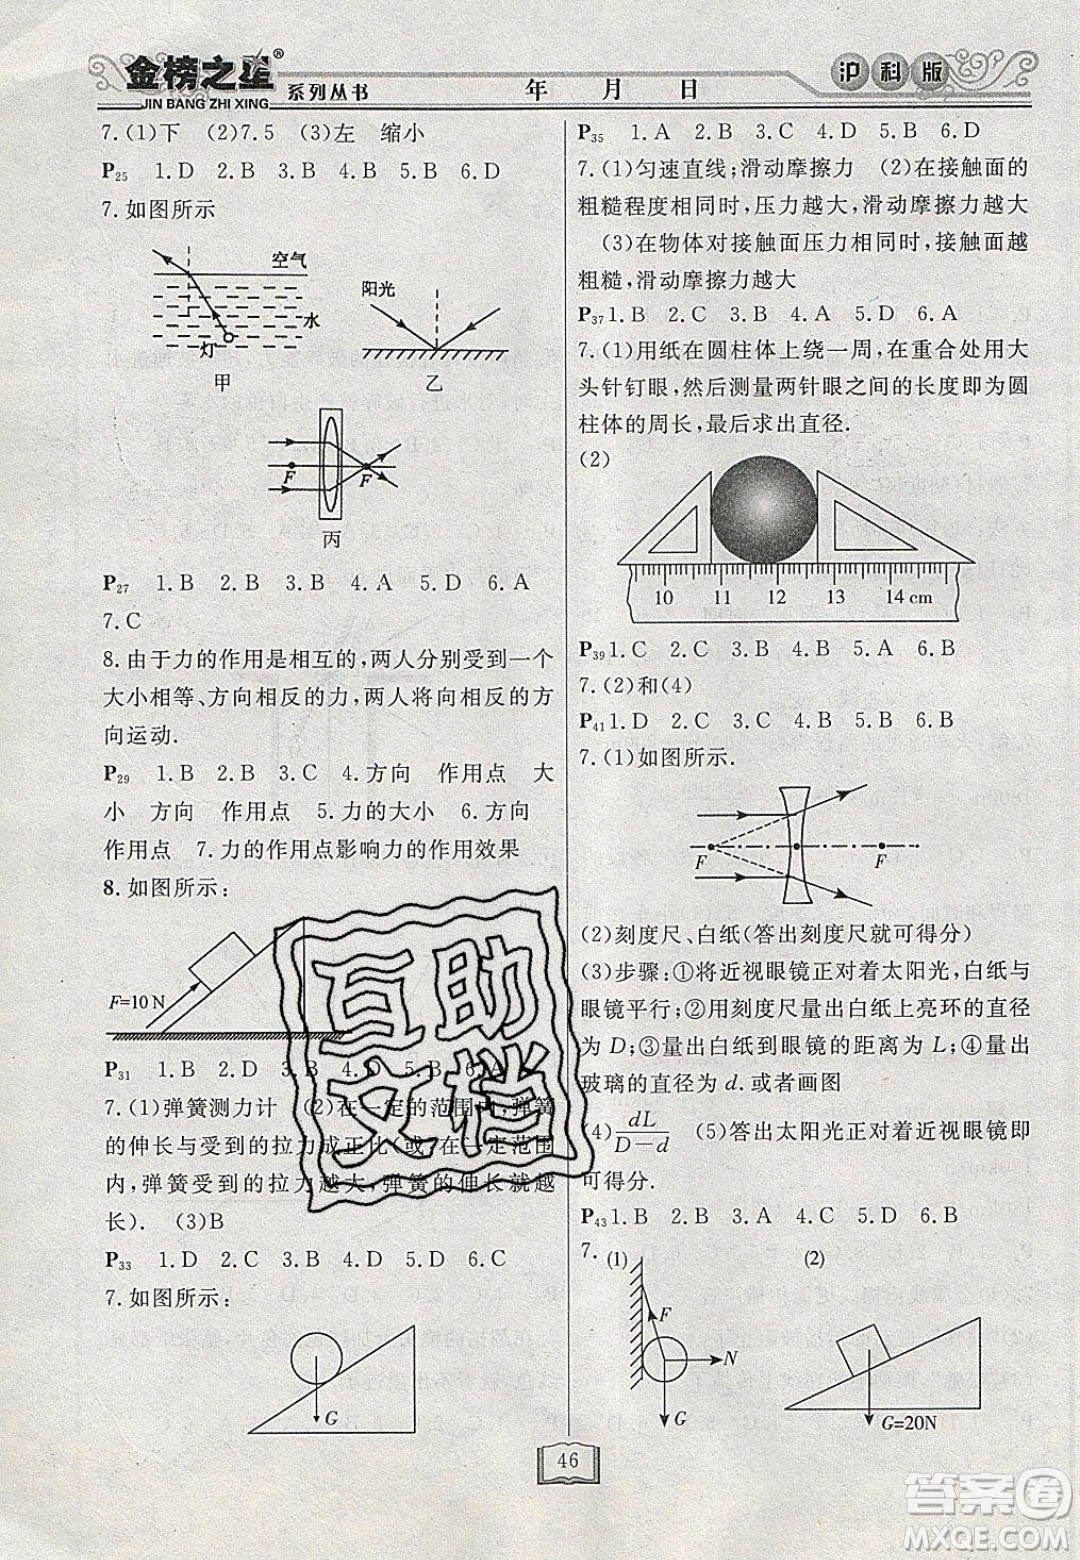 金榜之星®
JIN BANG ZHI XING
系列丛书
年 月 日
沪科版
7.(1)下 (2)7.5 (3)左 缩小
P25 1.D 2.B 3.C 4.B 5.D 6.D
7.如图所示
空气
水
灯
甲
阳光
乙
F F
丙
P27 1.B 2.B 3.B 4.D 5.A 6.A
7.C
8.由于力的作用是相互的,两人分别受到一个
大小相等、方向相反的力,两人将向相反的方
向运动.
P29 1.A 2.B 3.C 4.方向 作用点 大
小 方向 作用点 5.力的大小 6.方向
作用点 7.力的作用点影响力的作用效果
8.如图所示:
F=10 N
P31 1.A 2.D 3.B 4.D 5.B 6.A
7.(1)弹簧测力计 (2)在一定的范围内,弹簧
的伸长与受到的拉力成正比(或:在一定范围
内,弹簧受到的拉力越大,弹簧的伸长就越
长). (3)B
P33 1.D 2.C 3.B 4.B 5.C 6.D
7.如图所示:
G
P35 1.A 2.B 3.C 4.D 5.D 6.D
7.(1)匀速直线;滑动摩擦力 (2)在接触面的
粗糙程度相同时,压力越大,滑动摩擦力越大
(3)在物体对接触面压力相同时,接触面越
粗糙,滑动摩擦力越大
P37 1.B 2.A 3.B 4.A 5.D 6.A
7.(1)用纸在圆柱体上绕一周,在重合处用大
头针钉眼,然后测量两针眼之间的长度即为圆
柱体的周长,最后求出直径.
(2)
10 11 12 13 14 cm
P39 1.C 2.C 3.A 4.A 5.B 6.B
7.(2)和(4)
P41 1.D 2.C 3.D 4.B 5.B 6.D
7.(1)如图所示.
F F
(2)刻度尺、白纸(答出刻度尺就可得分)
(3)步骤:①将近视眼镜正对着太阳光,白纸与
眼镜平行;②用刻度尺量出白纸上亮环的直径
为 D;③量出白纸到眼镜的距离为 L;④量出
玻璃的直径为 d.或者画图
(4)dL/(D−d) (5)答出太阳光正对着近视眼镜即
可得分.
P43 1.B 2.D 3.A 4.C 5.B 6.B
7. (1) (2)
F
N
G
G=20N
46
互助文档
答案圈
MXQE.COM